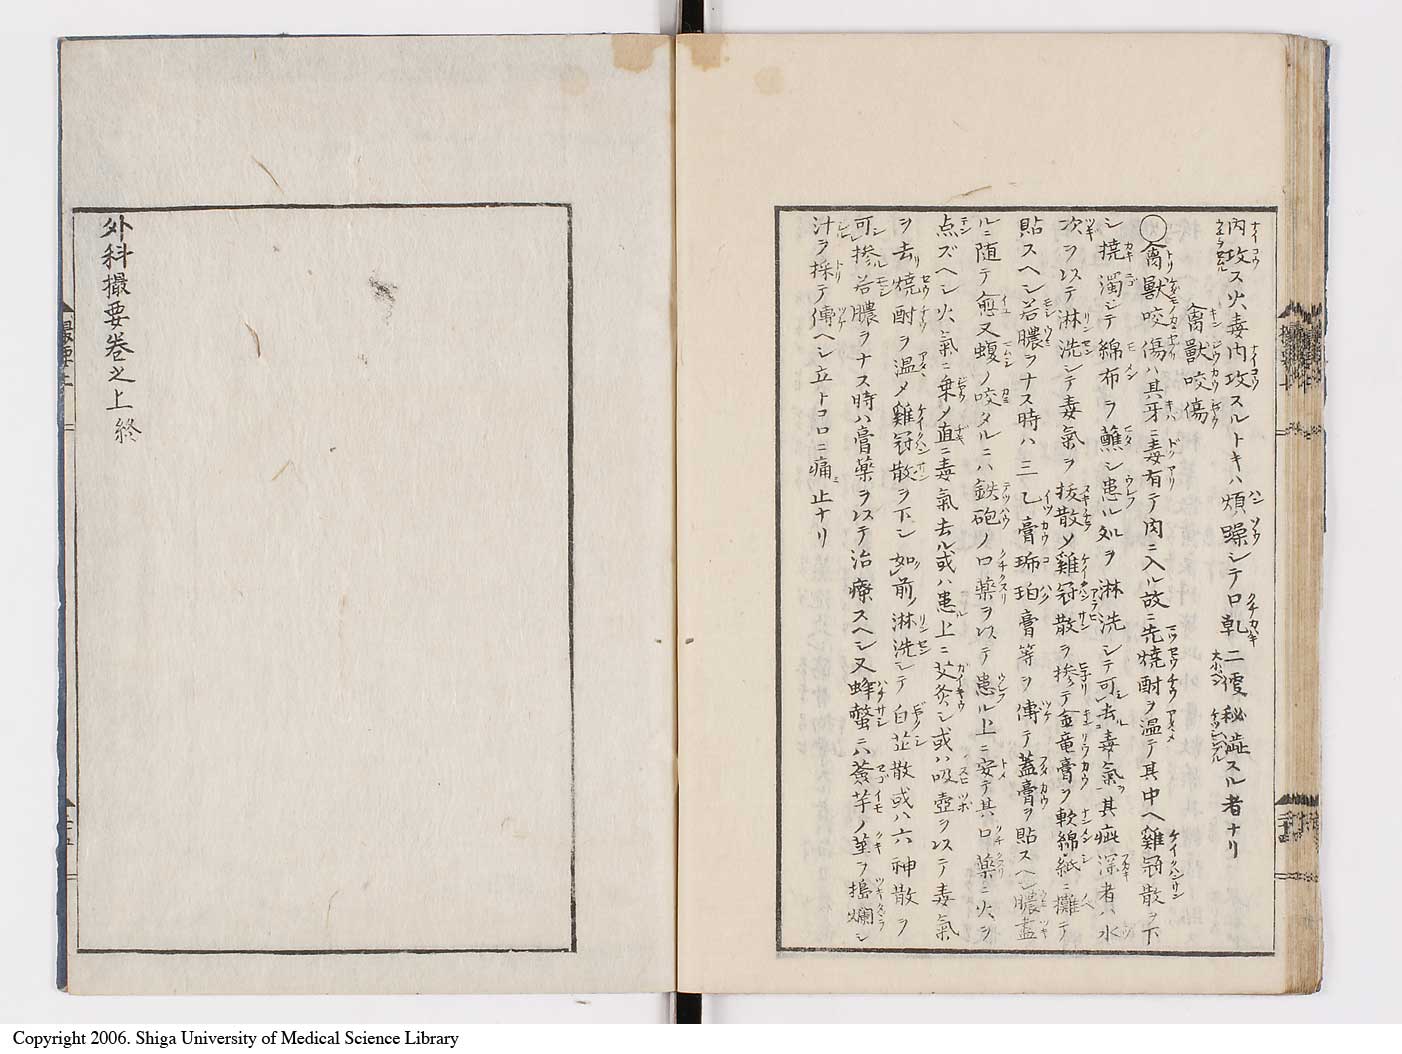 内攻ス火毒内攻スルトキハ煩躁シテ口乾二便秘澁スル者ナリ
禽獸咬傷
〇禽獸咬傷ハ其牙ニ毒有テ肉ニ入ル故ニ先焼酎ヲ温テ其中ヘ雞冠散ヲ下
シ撓濁シテ綿布ヲ蘸シ患ル処ヲ淋洗シテ可去毒氣ヲ其疵深者ハ水
次ヲ以テ淋洗シテ毒氣ヲ拔散メ雞冠散ヲ摻テ金竜膏ヲ軟綿紙ニ攤テ
貼スヘシ若膿ヲナス時ハ三乙膏琥珀膏等ヲ傅テ蓋膏ヲ貼スヘシ膿盡
ルニ随テ愈又蝮ノ咬タルニハ鉄砲ノ口薬ヲ以テ患ル上ニ安テ其口薬ニ火ヲ
点ズヘシ火氣ニ乗メ直ニ毒氣去ル或ハ患上ニ艾灸シ或ハ吸壺ヲ以テ毒氣
ヲ去焼酎ヲ温メ雞冠散ヲ下シ如前ノ淋洗シテ白芷散或ハ六神散ヲ
可摻若膿ヲナス時ハ膏薬ヲ以テ治療スヘシ又蜂螫ニハ芋ノ莖ヲ搗爛シ
汁ヲ採テ傅ヘシ立トコロニ痛止ナリ
外科撮要巻之上終
Copyright 2006. Shiga University of Medical Science Library